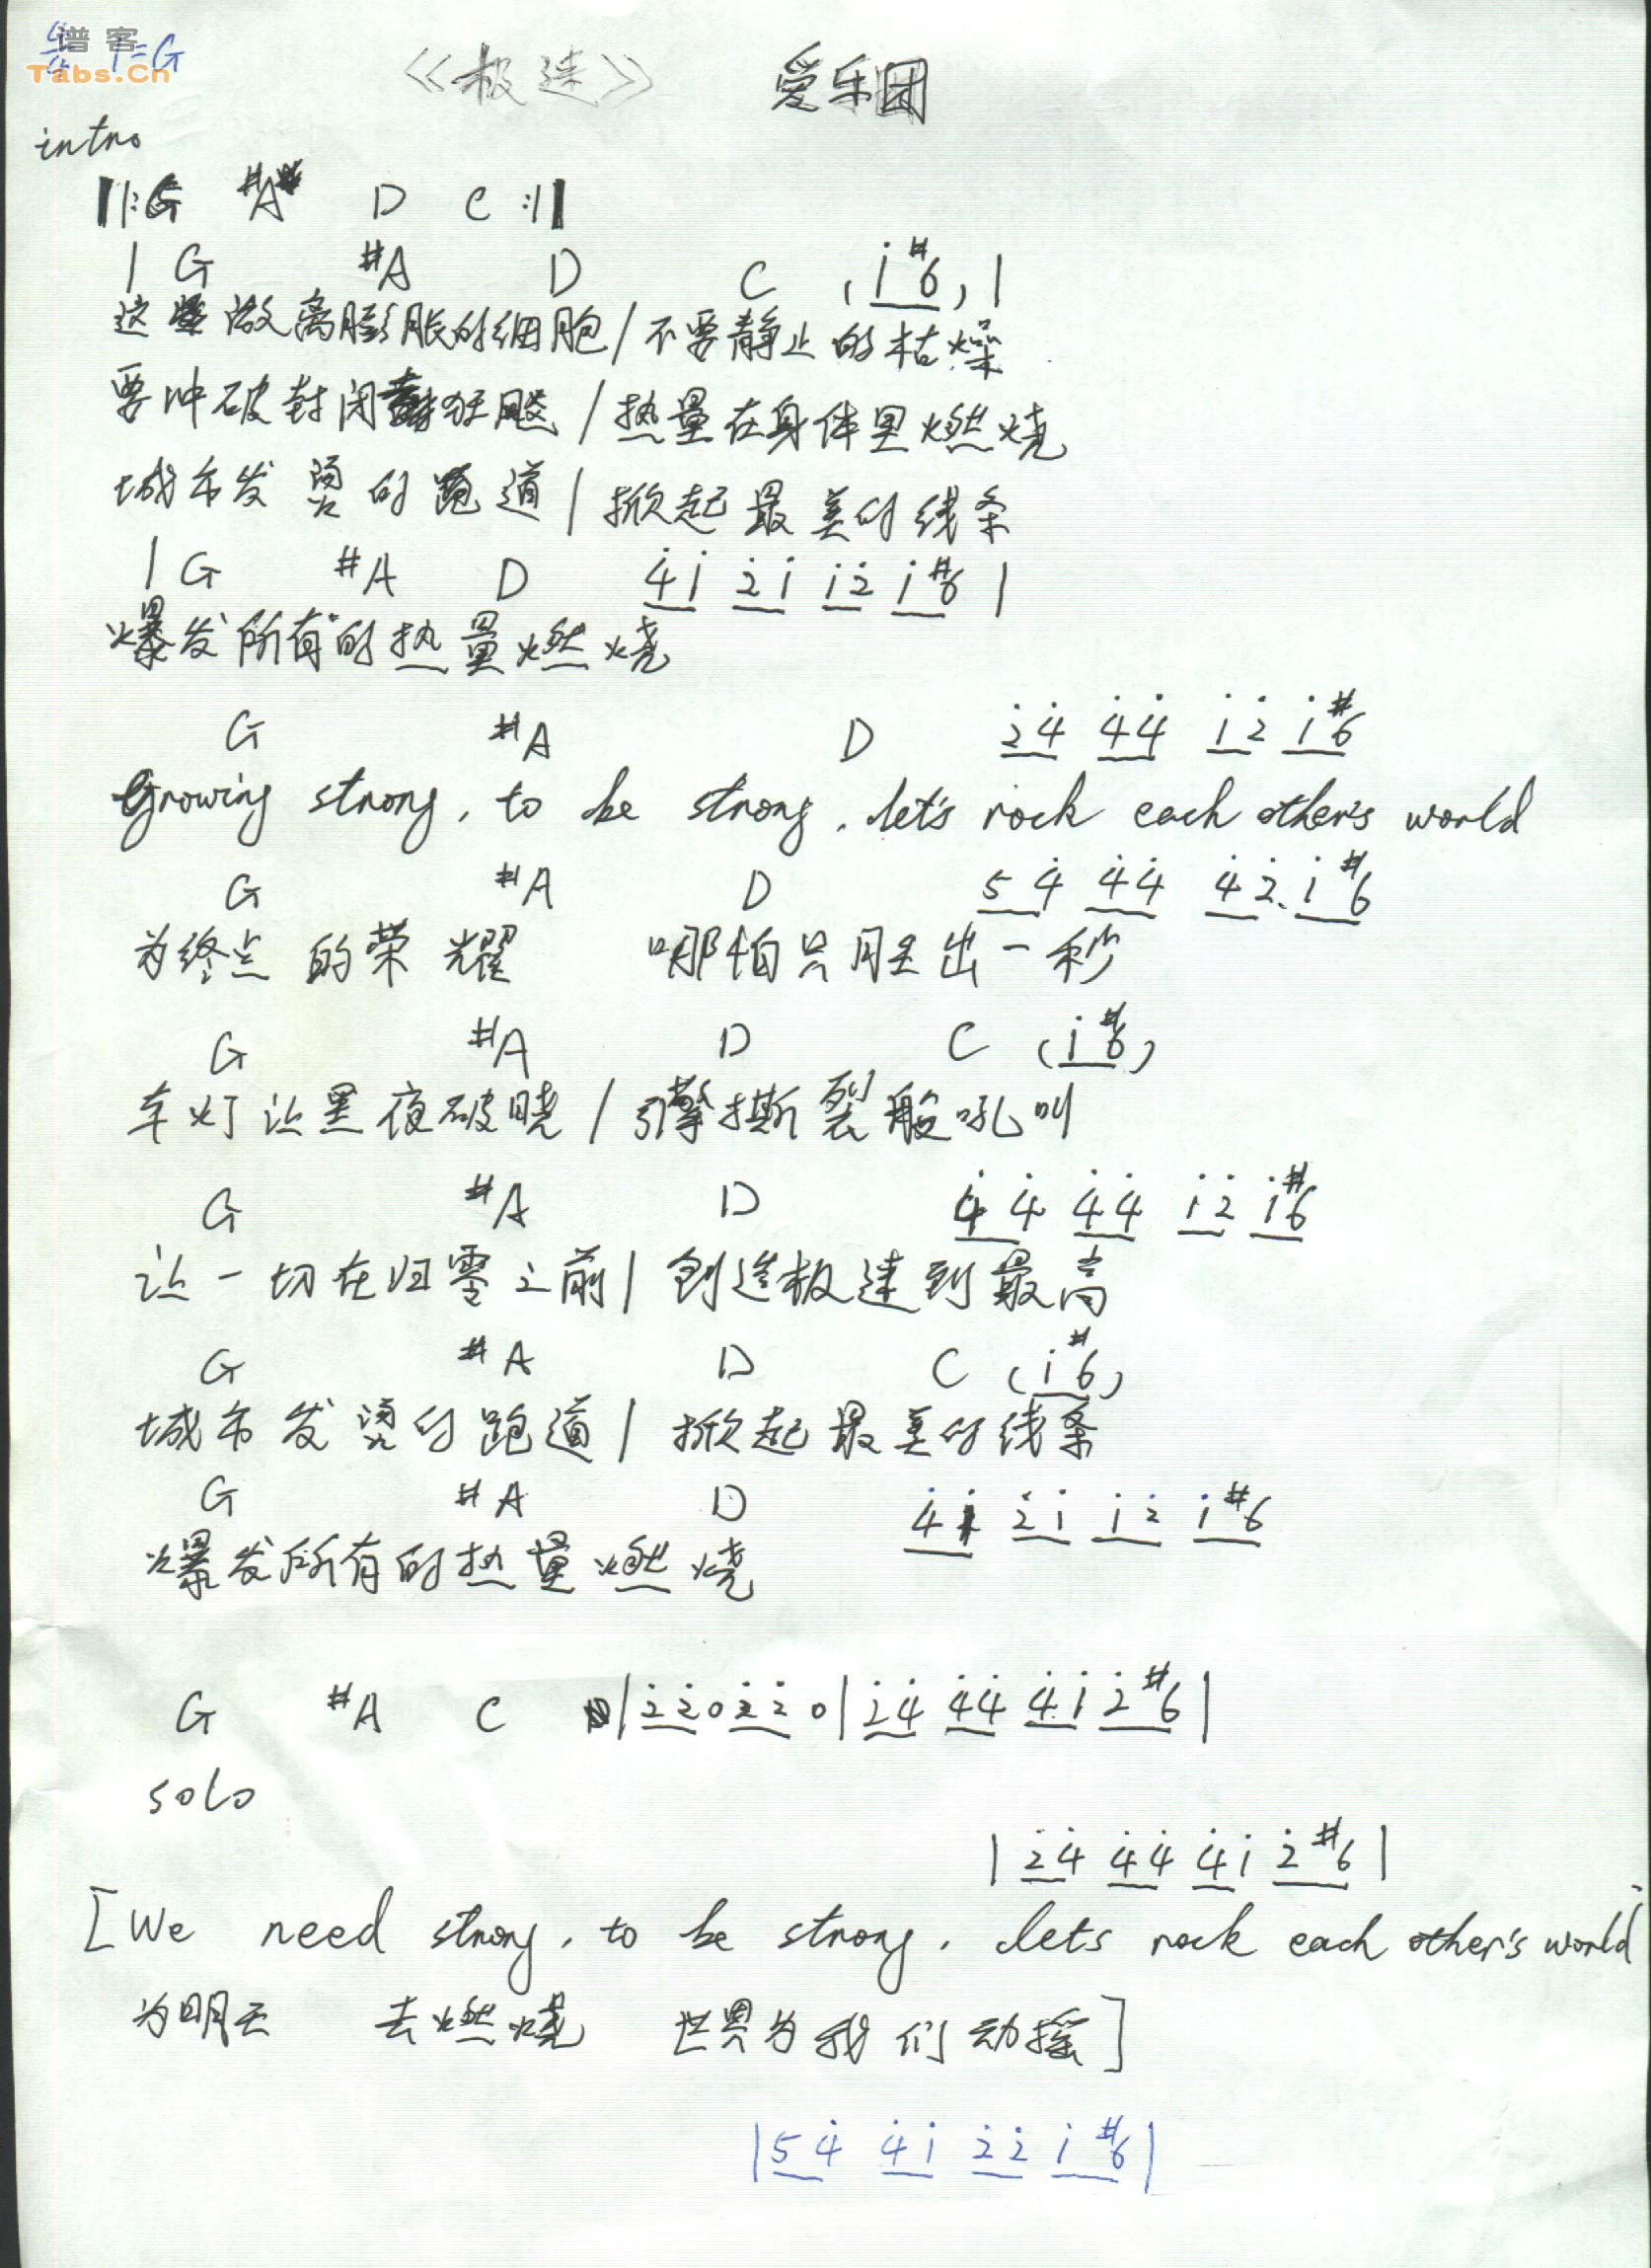 谱客
Tabs.Cn
4/4 1=G
《极速》 爱乐团
intro
‖: G #A D C :‖
| G #A D C (i̲ #̲6̲) |
这 激离膨胀的细胞/不要静止的枯燥
要冲破封闭 狂飚/热量在身体里燃烧
城市发烫的跑道/掀起最美的线条
| G #A D 4̇1̇ 2̇1̇ 1̇2̇ 1̇#6 |
爆发所有的热量燃烧
G #A D 2̇4̇ 4̇4̇ 1̇2̇ 1̇#6
Growing strong, to be strong, let's rock each other's world
G #A D 54̇ 4̇4̇ 4̇2̇ 1̇#6
为终点的荣耀 哪怕只胜出一秒
G #A D C (1̇#6)
车灯让黑夜破晓/引擎撕裂般吼叫
G #A D 4̇4̇ 4̇4̇ 1̇2̇ 1̇#6
让一切在归零之前/创造极速到最高
G #A D C (1̇#6)
城市发烫的跑道/掀起最美的线条
G #A D 4̇1̇ 2̇1̇ 1̇2̇ 1̇#6
爆发所有的热量燃烧
G #A C | 2̇2̇0 2̇2̇0 | 2̇4̇ 4̇4̇ 4̇1̇ 2̇#6 |
solo
| 2̇4̇ 4̇4̇ 4̇1̇ 2̇#6 |
[We need strong, to be strong, lets rock each other's world
为明天 去燃烧 世界为我们动摇]
| 54̇ 4̇1̇ 2̇2̇ 1̇#6 |